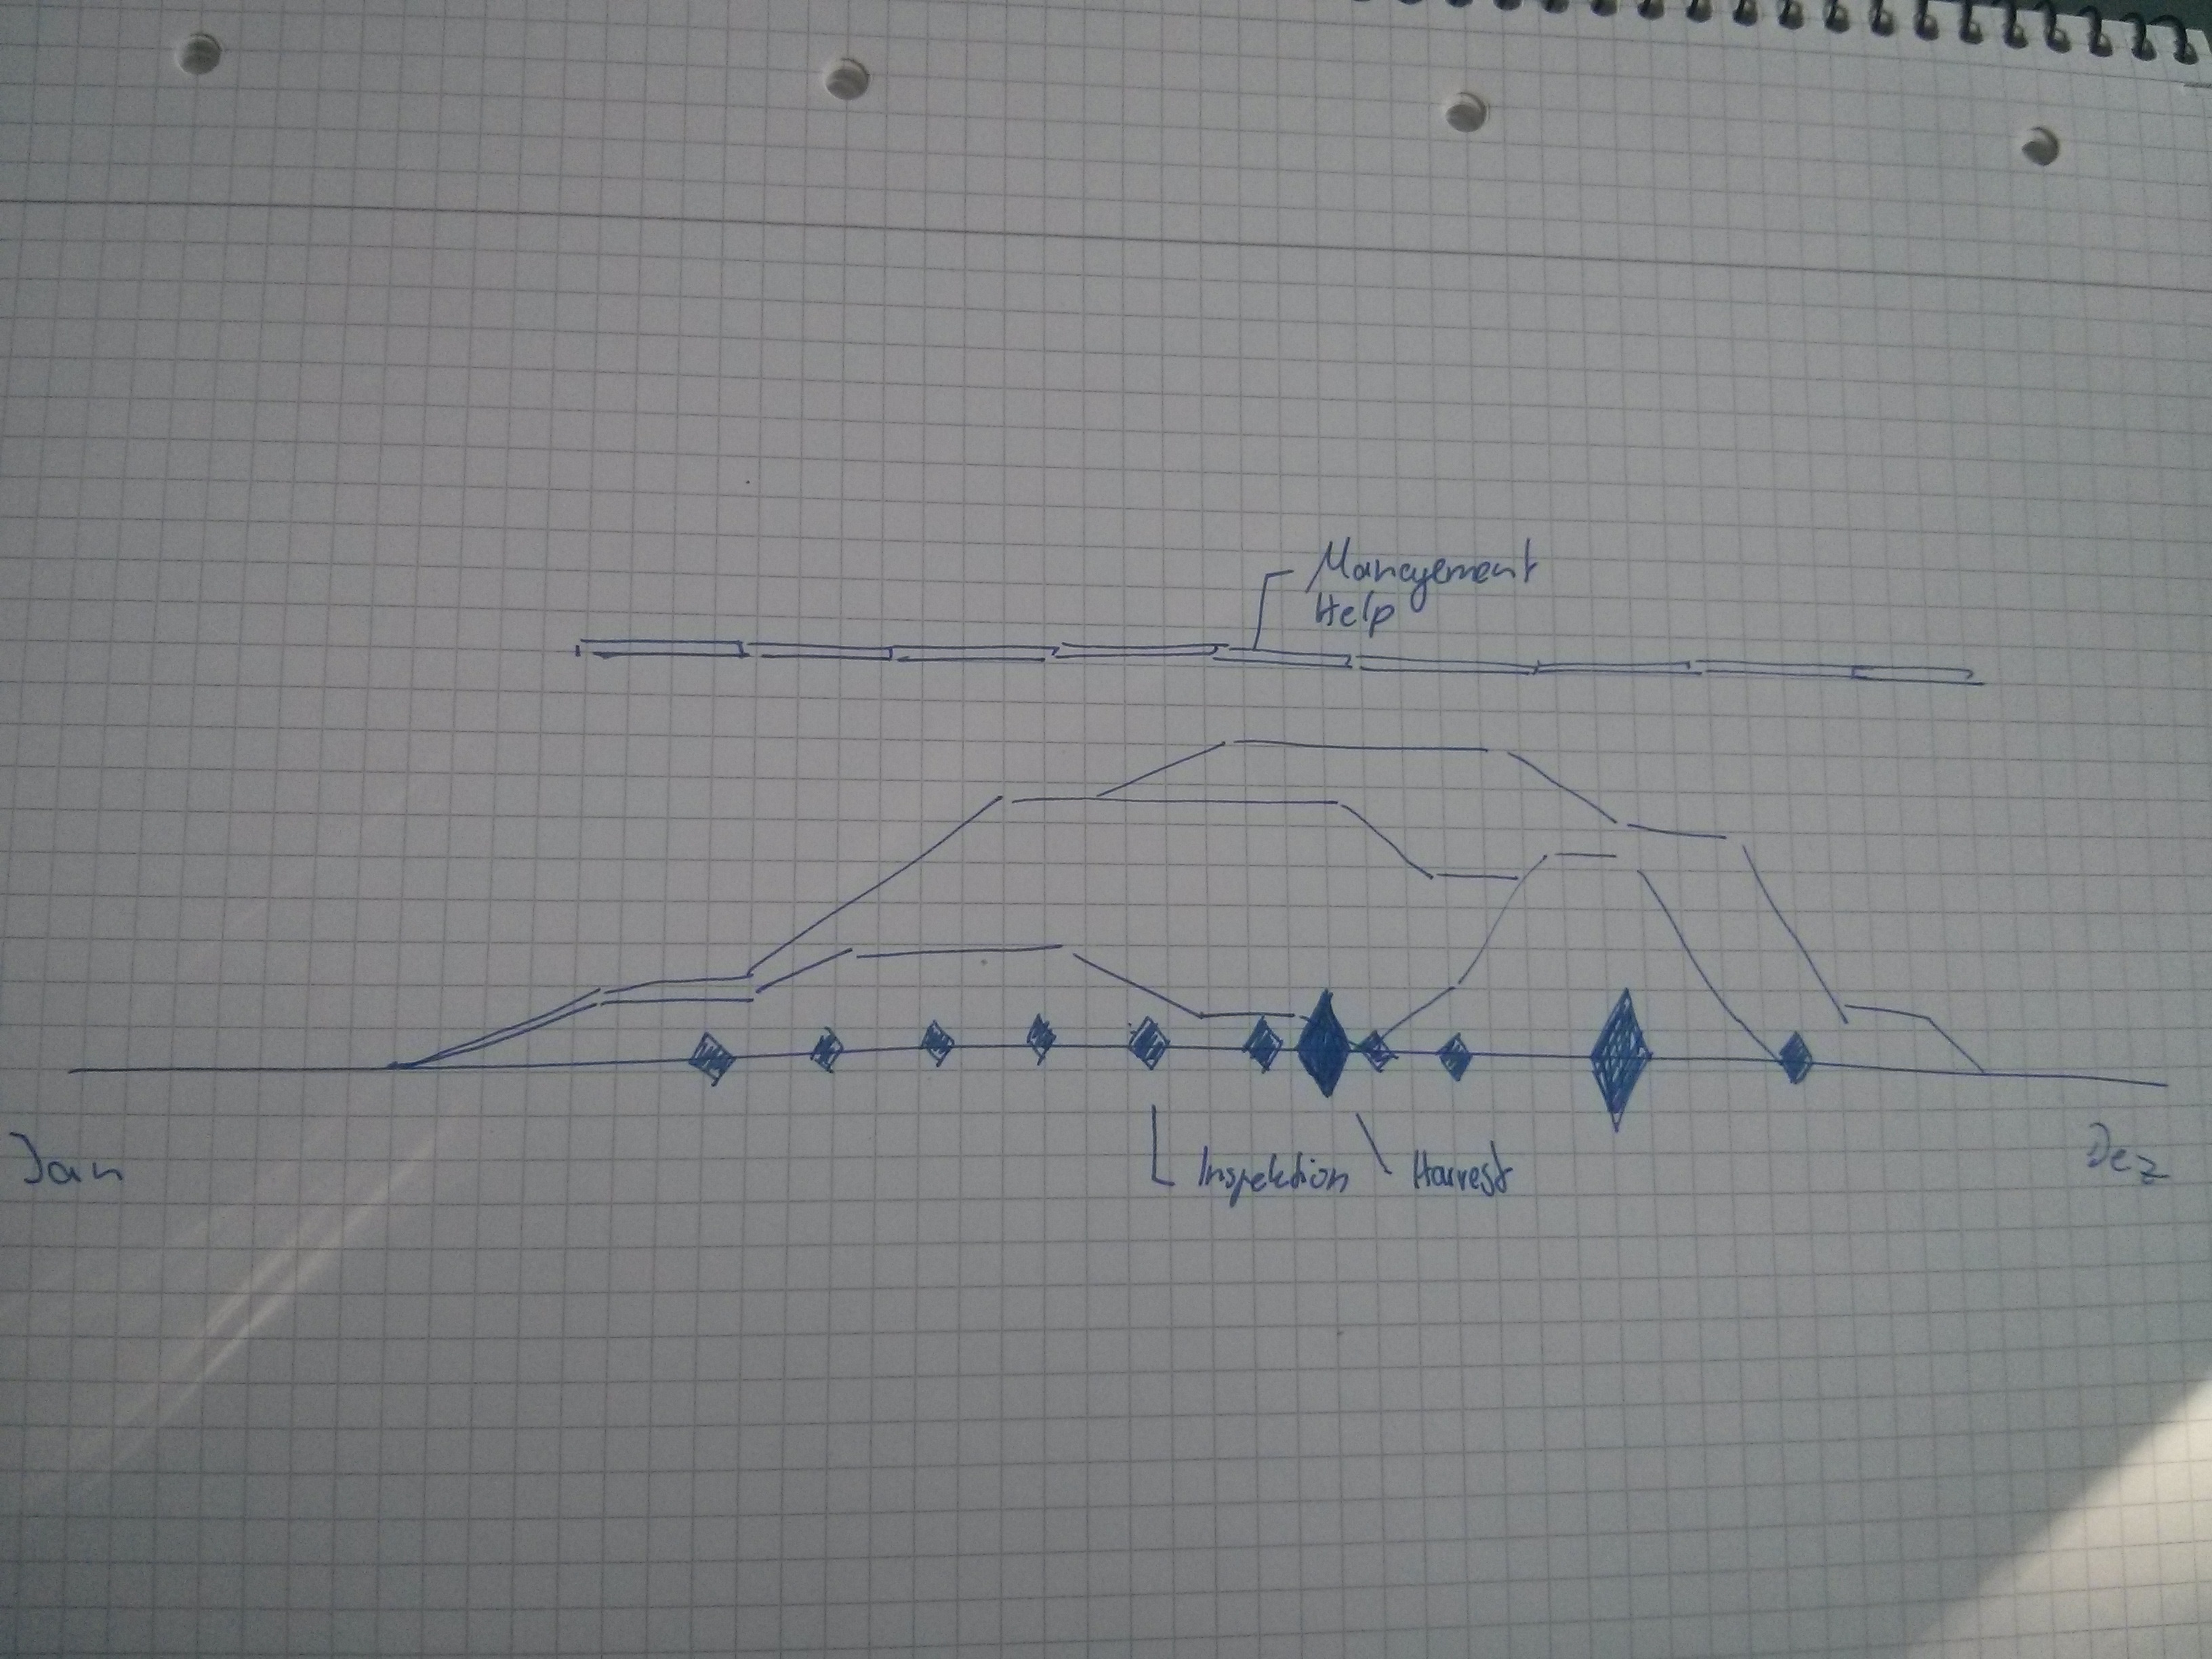 Management
Help
Jan
Dez
Inspektion
Harvest